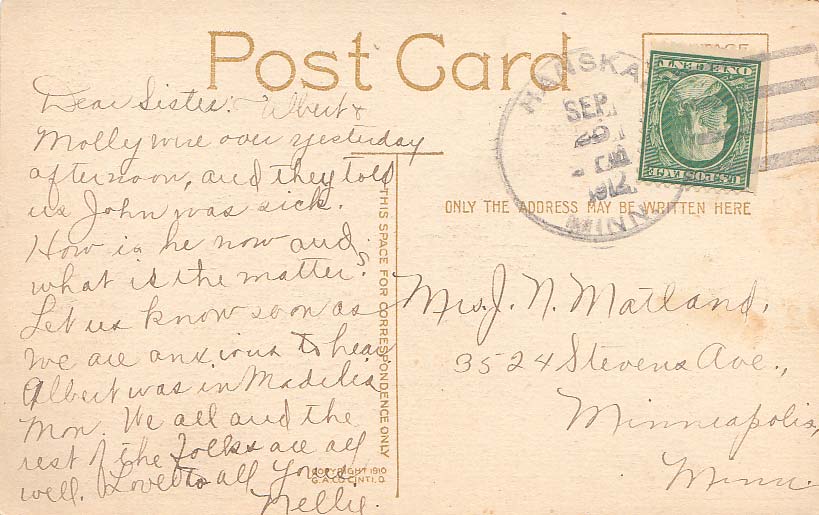 Post Card
Dear Sister: Albert &
Molly were over yesterday
afternoon, and they told
us John was sick.
How is he now and
what is the matter?
Let us know soon as
we are anxious to hear
Albert was in Madelia
Mon. We all and the
rest of the folks are all
well. Love to all Yours
Nellie.
THIS SPACE FOR CORRESPONDENCE ONLY
COPYRIGHT 1910
G.A.CO CINTI, O.
HANSKA
SEP
1912
MINN
ONE CENT
U.S. POSTAGE
ONLY THE ADDRESS MAY BE WRITTEN HERE
Mrs. J. N. Matland,
3524 Stevens Ave.,
Minneapolis,
Minn.